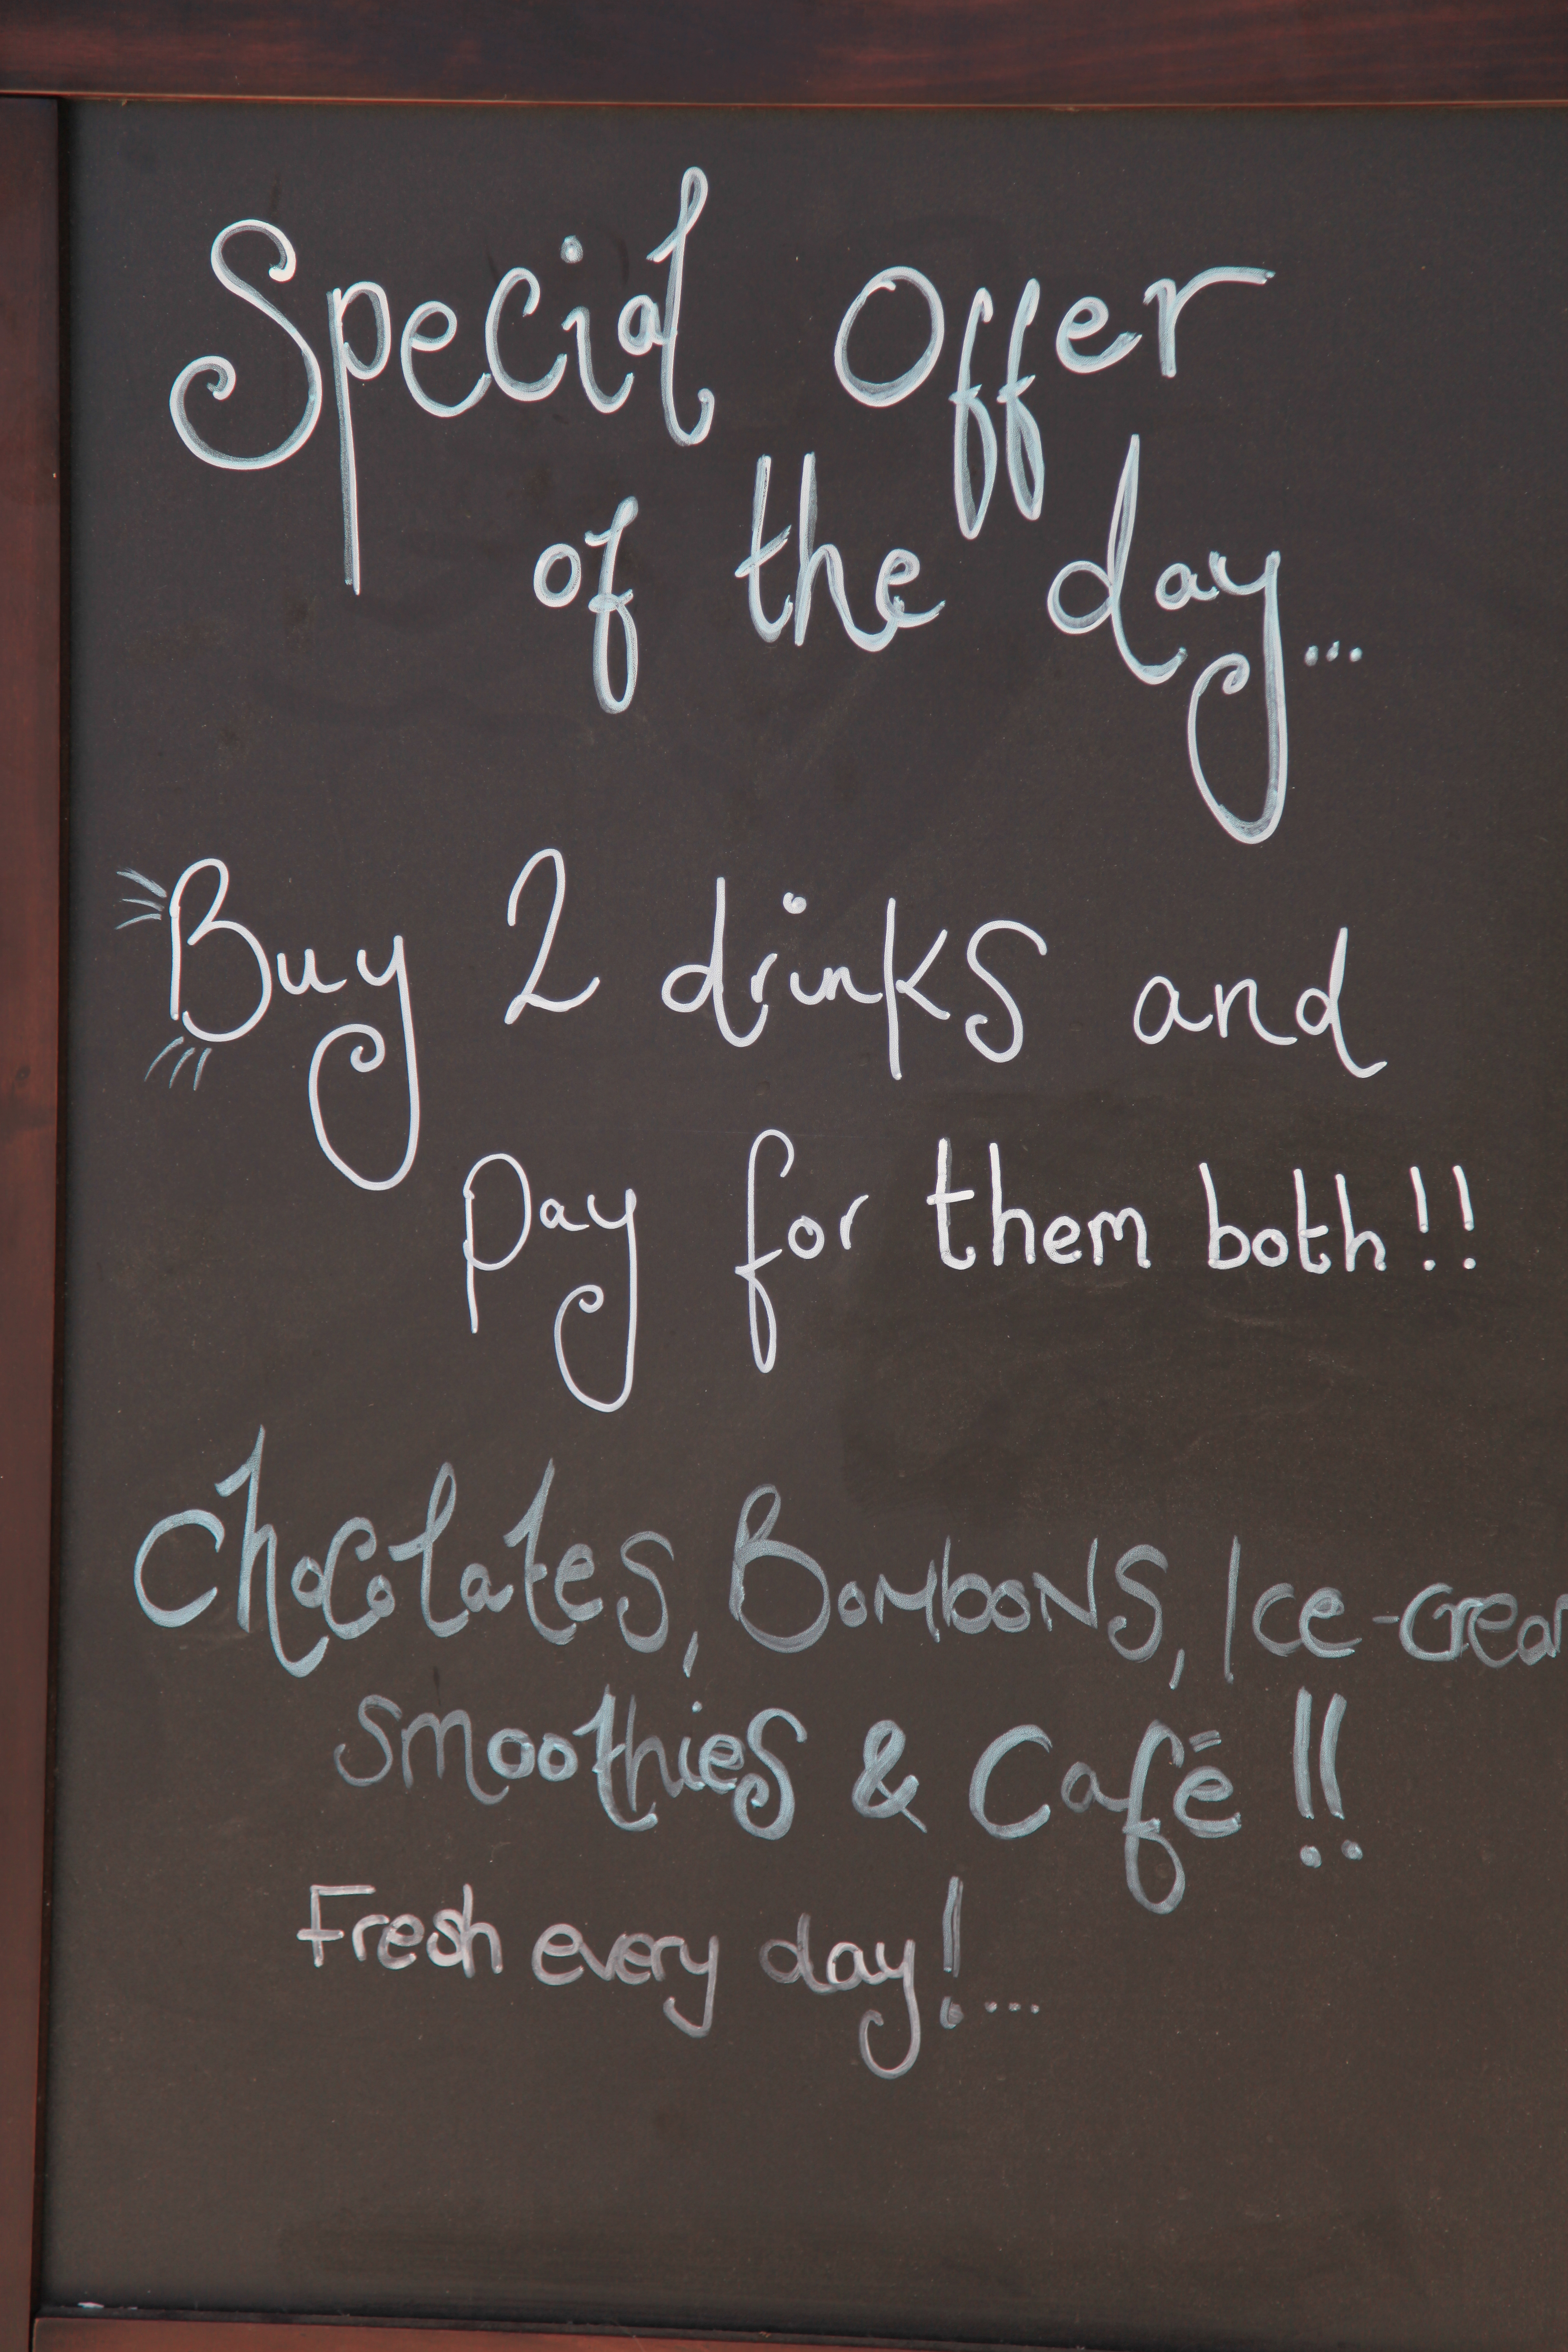 Special Offer
of the day...
Buy 2 drinks and
pay for them both!!
Chocolates, Bombons, Ice-crea
smoothies & Café!!
Fresh every day!...